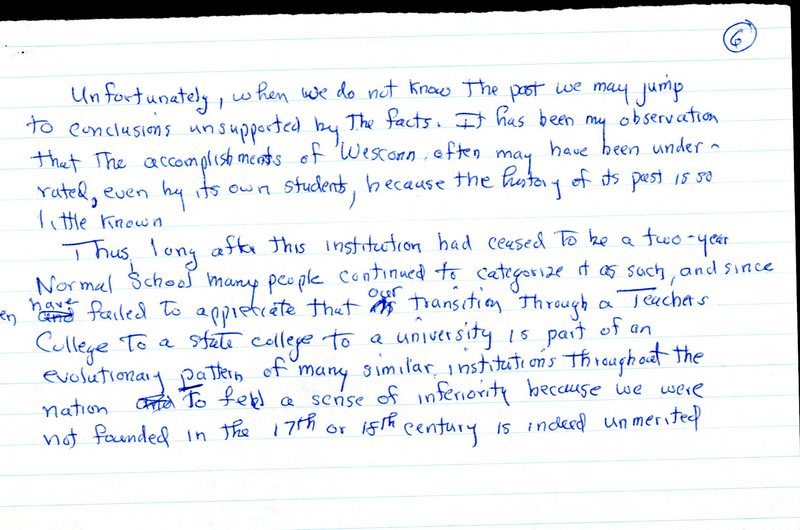 6
Unfortunately, when we do not know the past we may jump
to conclusions unsupported by the facts. It has been my observation
that the accomplishments of Wesconn often may have been under-
rated, even by its own students, because the history of its past is so
little known
Thus, long after this institution had ceased to be a two-year
Normal School many people continued to categorize it as such, and since
en have failed to appreciate that our transition through a Teachers
College to a state college to a university is part of an
evolutionary pattern of many similar institutions throughout the
nation to feel a sense of inferiority because we were
not founded in the 17th or 18th century is indeed unmerited